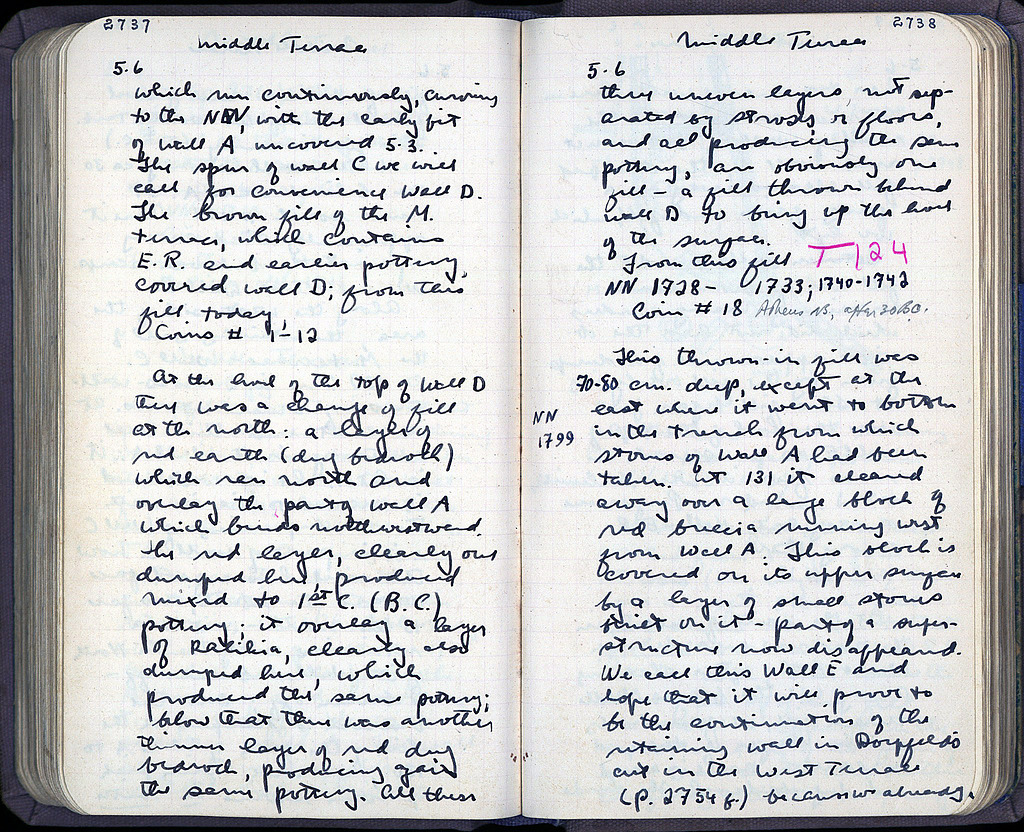 2737
Middle Terrace
5.6
which run continuously, curving
to the NNW, with the early bit
of wall A uncovered 5.3.
The spur of wall C we will
call for convenience Wall D.
The brown fill of the M.
Terrace, which contains
E.R. and earlier pottery,
covered wall D; from this
fill today,
Coins # 1-12
At the level of the top of Wall D
there was a change of fill
at the north: a layer of
red earth (dug bedrock)
which ran north and
overlay the part of wall A
which bends northwestward.
The red layer, clearly one
dumped here, produced
mixed to 1st C. (B.C.)
pottery; it overlay a layer
of Kalikia, clearly also
dumped here, which
produced the same pottery;
below that there was another
thinner layer of red dug
bedrock, producing again
the same pottery. All these
2738
Middle Terrace
5.6
three uneven layers, not sep-
arated by strosis or floors,
and all producing the same
pottery, are obviously one
fill – a fill thrown behind
wall D to bring up the level
of the surface.
From this fill T124
NN 1728- 1733; 1740-1742
Coin # 18 Athens AE, after 30 B.C.
This thrown-in fill was
70-80 cm. deep, except at the
east where it went to bottom
NN
1799
in the trench from which
stones of Wall A had been
taken. At 131 it cleared
away over a large block of
red breccia running west
from Wall A. This block is
covered on its upper surface
by a layer of small stones
built on it – part of a super-
structure now disappeared.
We call this Wall E and
hope that it will prove to
be the continuation of the
retaining wall in Dörpfeld's
cut in the West Terrace
(p. 2754 f.) because we already